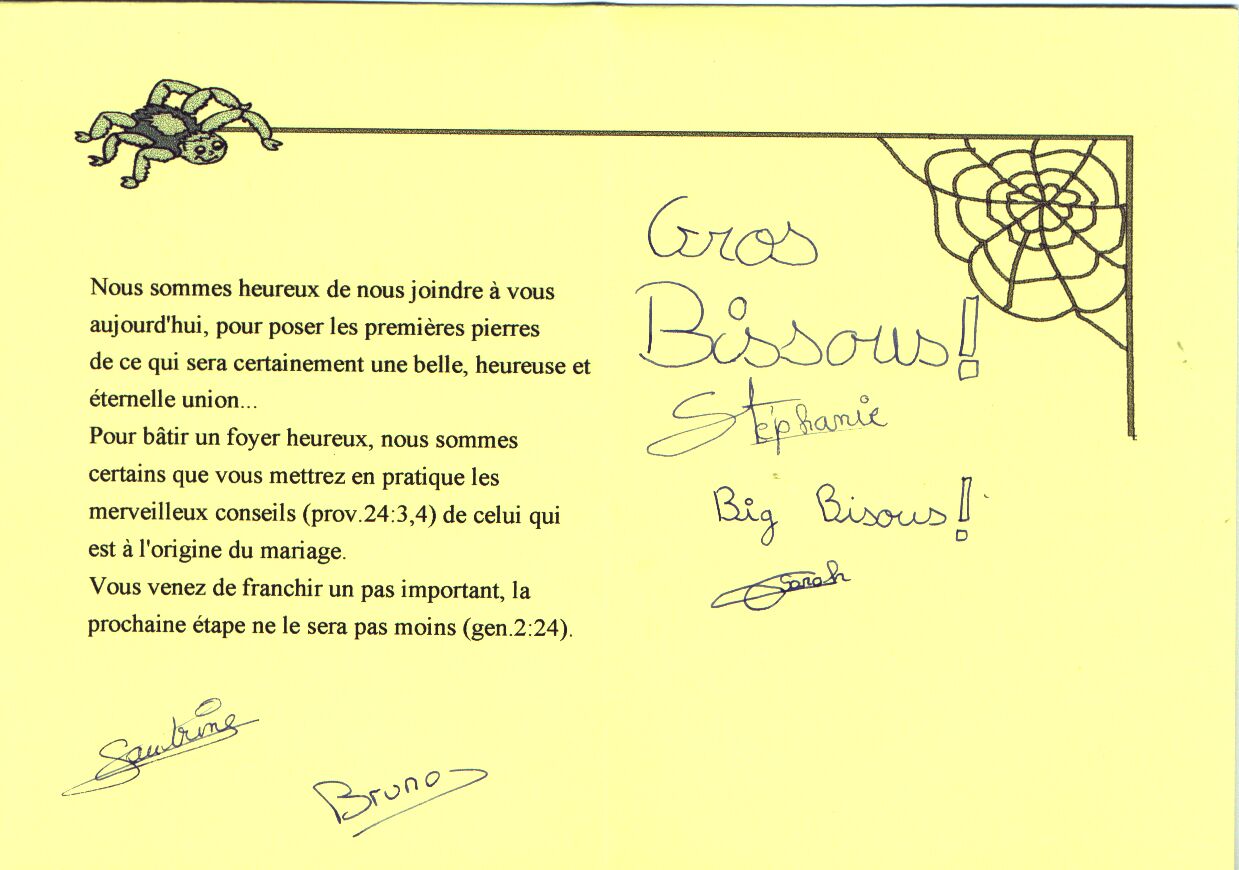 Nous sommes heureux de nous joindre à vous
aujourd'hui, pour poser les premières pierres
de ce qui sera certainement une belle, heureuse et
éternelle union...
Pour bâtir un foyer heureux, nous sommes
certains que vous mettrez en pratique les
merveilleux conseils (prov.24:3,4) de celui qui
est à l'origine du mariage.
Vous venez de franchir un pas important, la
prochaine étape ne le sera pas moins (gen.2:24).
Bruno
Gros
Bissous!
Stéphanie
Big Bisous!
Sarah